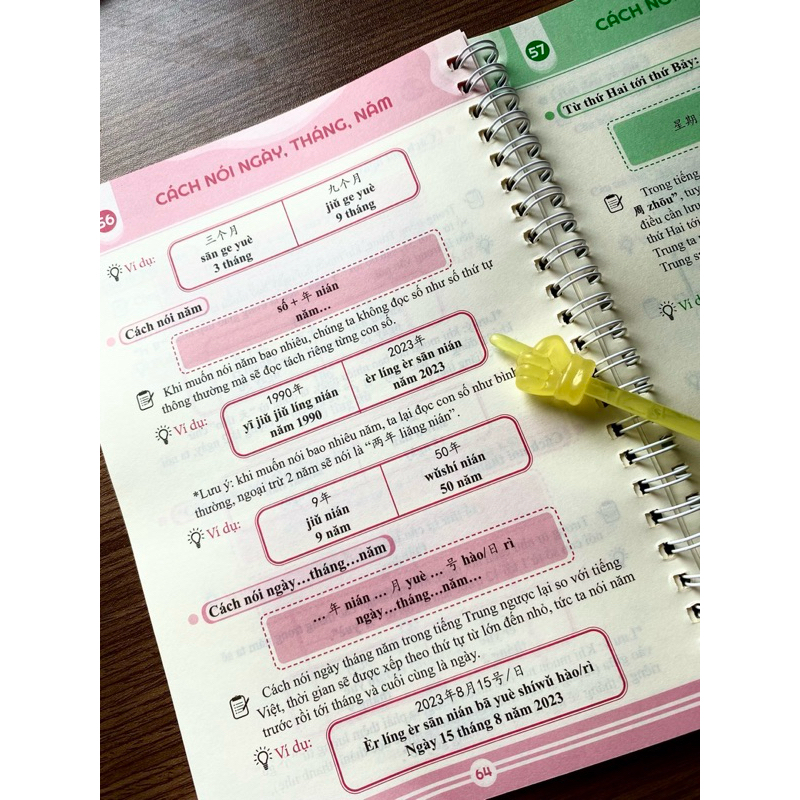 56
CÁCH NÓI NGÀY, THÁNG, NĂM
Ví dụ:
三个月
sān ge yuè
3 tháng
九个月
jiǔ ge yuè
9 tháng
Cách nói năm
số + 年 nián
năm...
Khi muốn nói năm bao nhiêu, chúng ta không đọc số như số thứ tự
thông thường mà sẽ đọc tách riêng từng con số.
Ví dụ:
1990年
yī jiǔ jiǔ líng nián
năm 1990
2023年
èr líng èr sān nián
năm 2023
*Lưu ý: khi muốn nói bao nhiêu năm, ta lại đọc con số như bình
thường, ngoại trừ 2 năm sẽ nói là “两年 liǎng nián”.
Ví dụ:
9年
jiǔ nián
9 năm
50年
wǔshí nián
50 năm
Cách nói ngày...tháng...năm
... 年 nián ... 月 yuè ... 号 hào/日 rì
ngày...tháng...năm...
Cách nói ngày tháng năm trong tiếng Trung ngược lại so với tiếng
Việt, thời gian sẽ được xếp theo thứ tự từ lớn đến nhỏ, tức ta nói năm
trước rồi tới tháng và cuối cùng là ngày.
Ví dụ:
2023年8月15号/日
Èr líng èr sān nián bā yuè shíwǔ hào/rì
Ngày 15 tháng 8 năm 2023
64
57
CÁCH NÓ
Từ thứ Hai tới thứ Bảy:
星期
Trong tiếng
周 zhōu”, tuy
điều cần lưu
thứ Hai tới
Trung ta
Trung s
Ví d